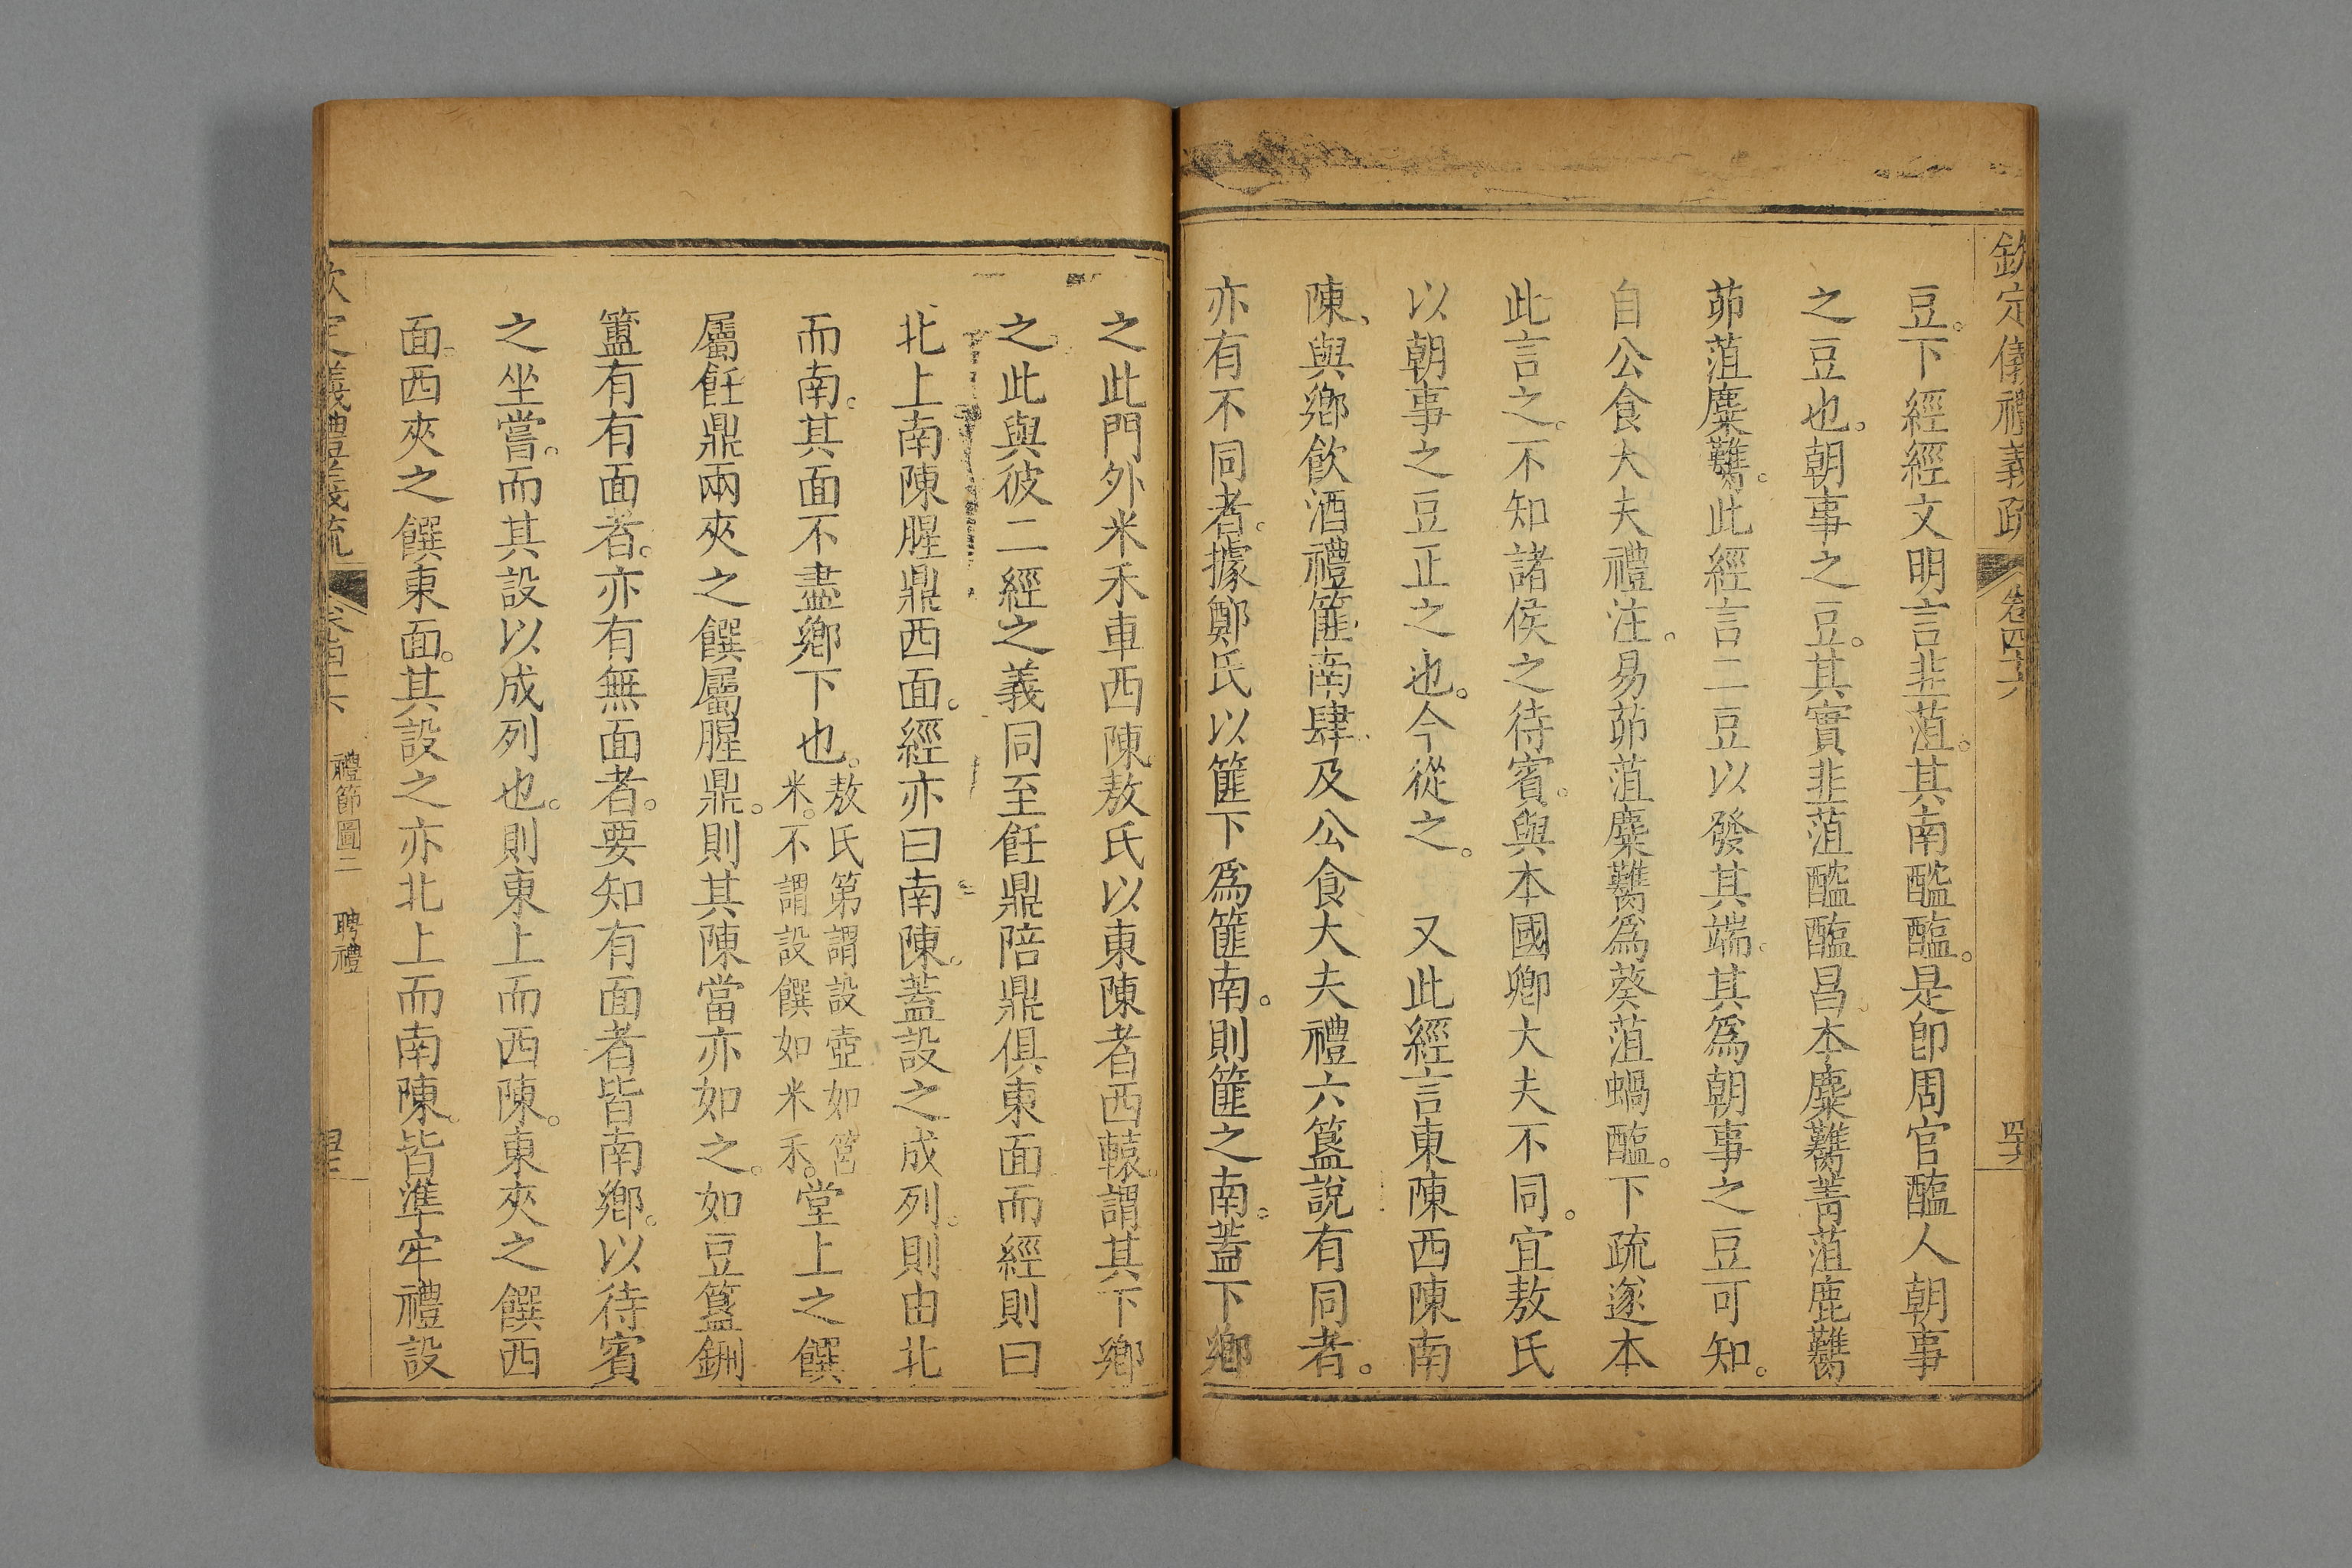 欽定儀禮義疏 卷四十六
豆。下經經文明言韭菹。其南醓醢。是卽周官醢人朝事
之豆也。朝事之豆。其實韭菹醓醢昌本麋臡菁菹鹿臡
茆菹麋臡。此經言二豆以發其端。其爲朝事之豆可知。
自公食大夫禮注。易茆菹麋臡爲葵菹蝸醢。下疏遂本
此言之。不知諸侯之待賓。與本國卿大夫不同。宜敖氏
以朝事之豆正之也。今從之。 又此經言東陳西陳南
陳。與鄉飲酒禮篚南肆及公食大夫禮六簋說有同者。
亦有不同者。據鄭氏以篚下爲篚南。則篚之南。蓋下鄉
之此門外米禾車西陳。敖氏以東陳者西轅。謂其下鄉
之。此與彼二經之義同至飪鼎陪鼎俱東面而經則曰
北上南陳腥鼎西面。經亦曰南陳。蓋設之成列。則由北
而南。其面不盡鄉下也。敖氏第謂設壺如筥米。不謂設饌如米禾。堂上之饌
屬飪鼎兩夾之饌屬腥鼎。則其陳當亦如之。如豆簋鉶
簠有有面者。亦有無面者。要知有面者皆南鄉。以待賓
之坐嘗。而其設以成列也。則東上而西陳。東夾之饌西
面。西夾之饌東面。其設之亦北上而南陳。皆準牢禮設
禮節圖二 聘禮